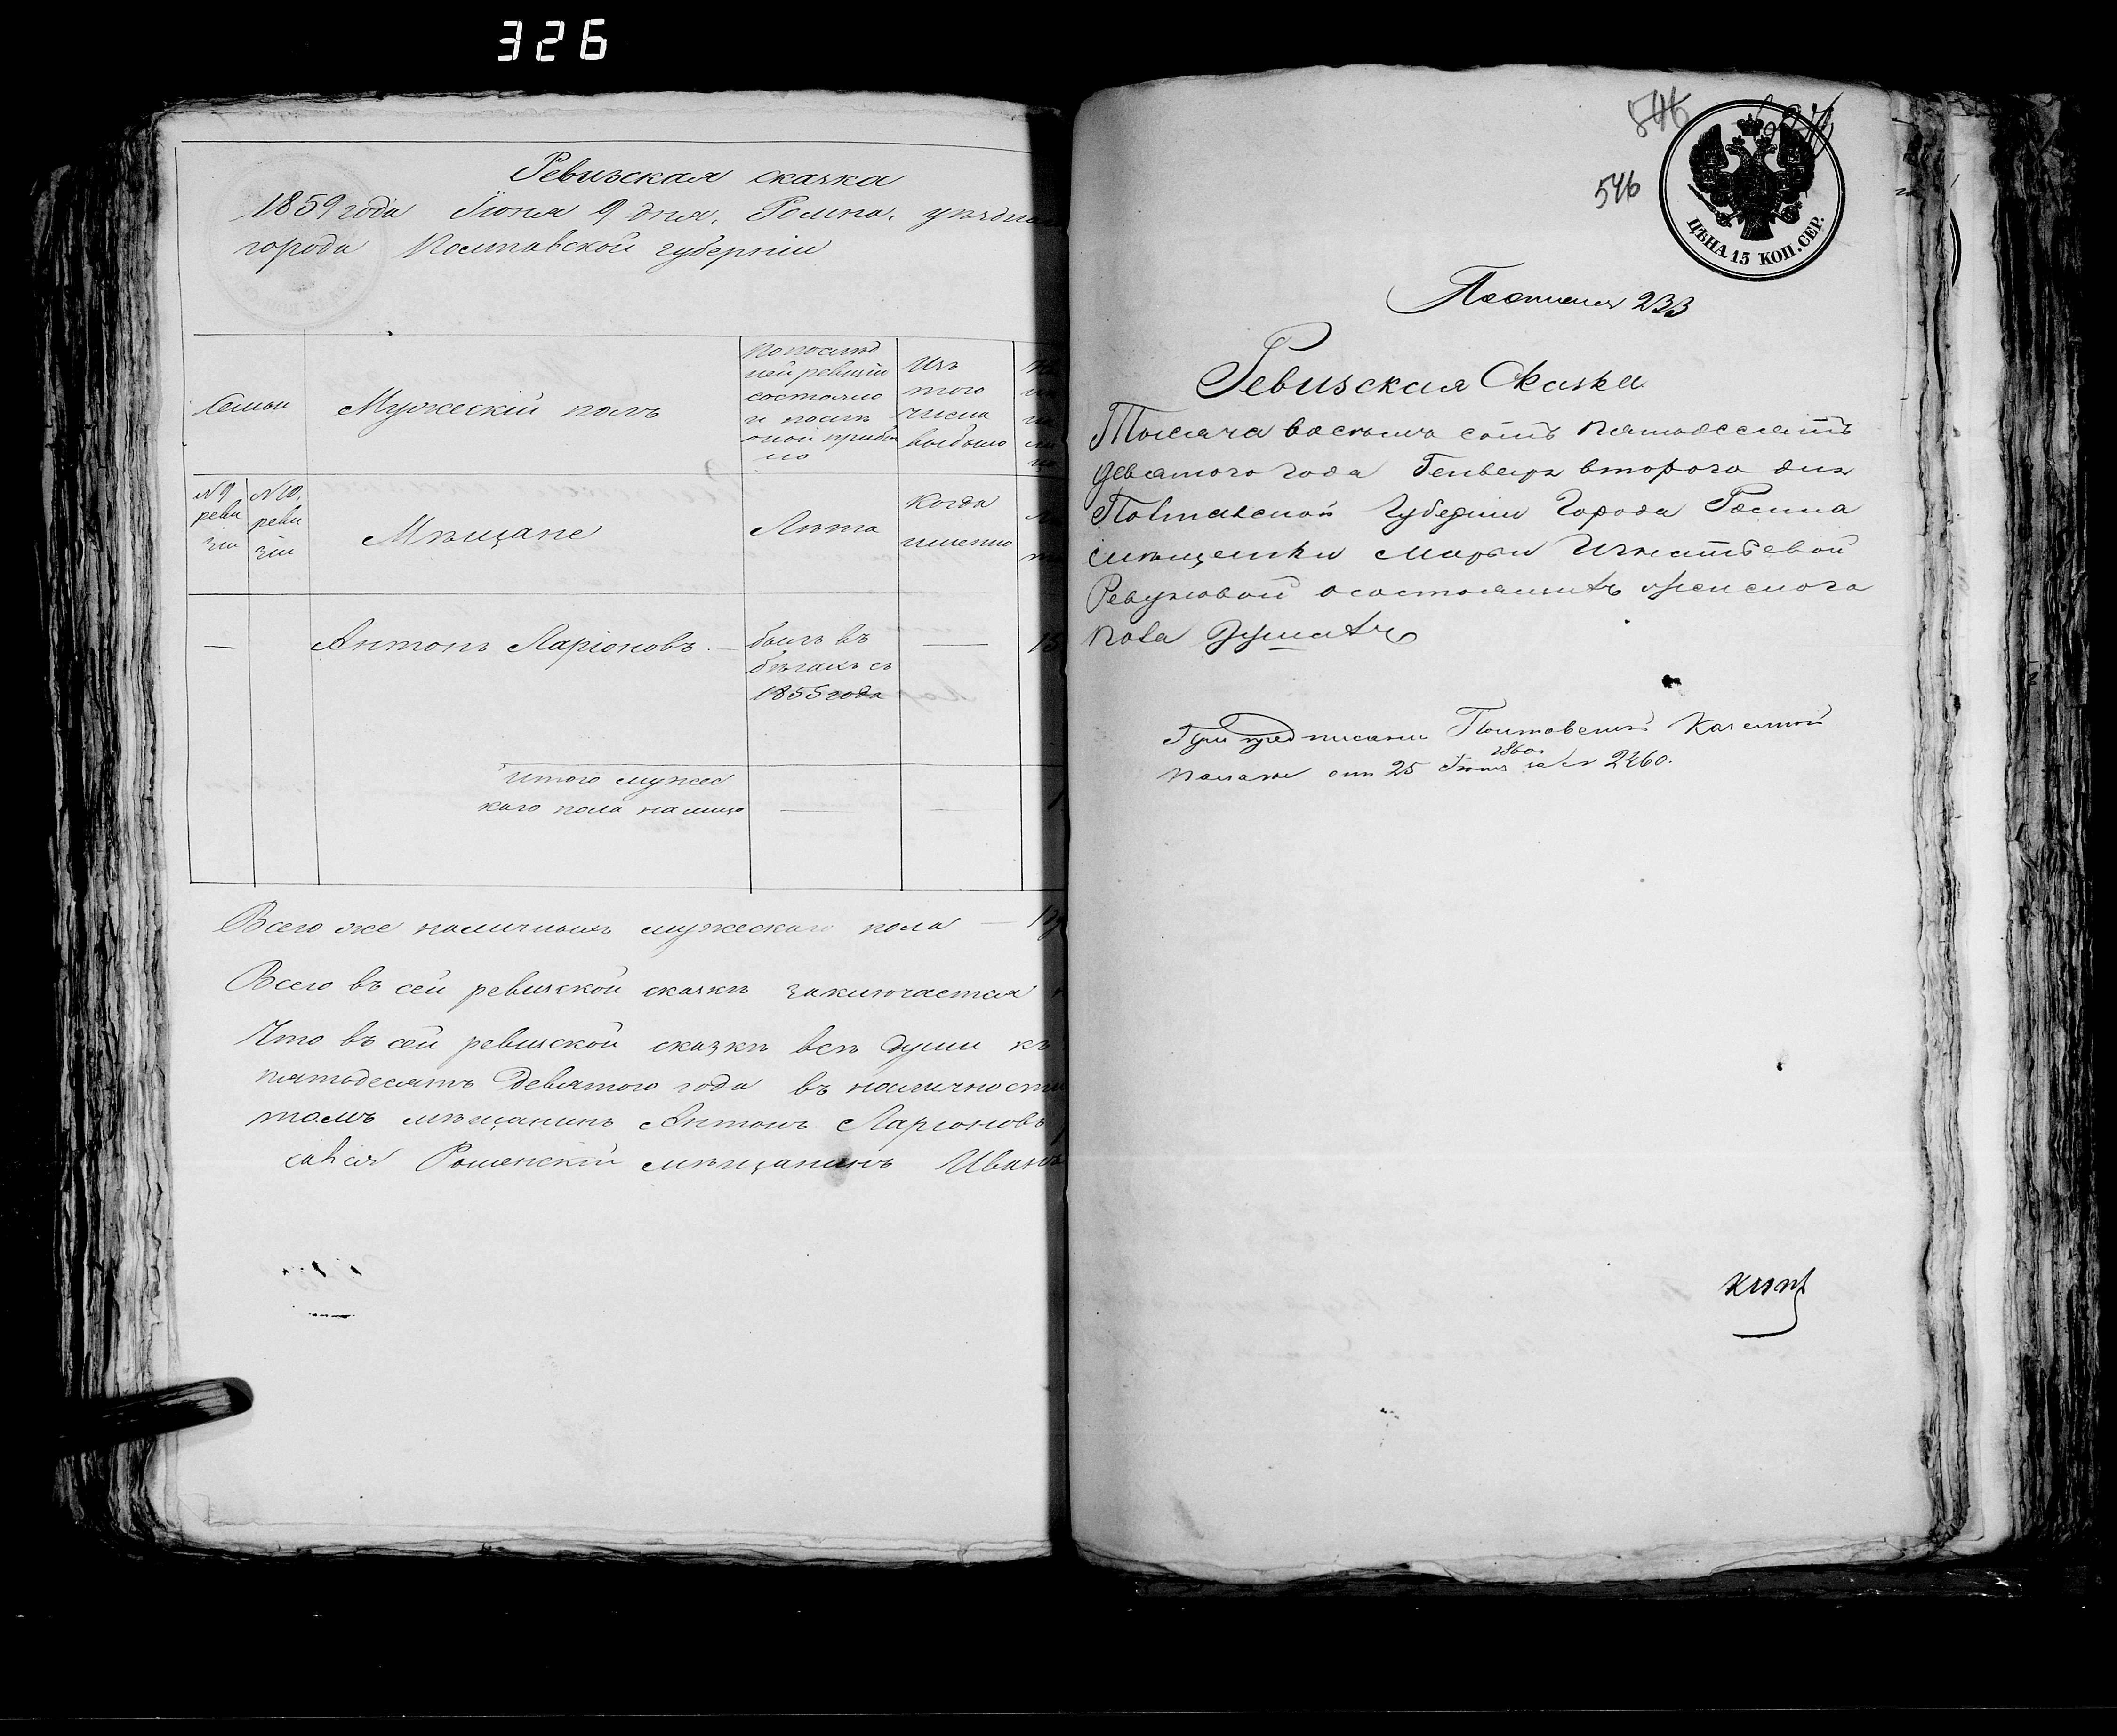 326
Ревизская сказка
1859 года Іюня 9 дня, Ромна, уѣзднаго
города Полтавской губерніи
Семьи
Мужескій полъ
По послѣд
ней ревизіи
состояло
и послѣ
оной прибы
ло
Изъ
того
числа
выбыло
№ 9
реви
зіи
№ 10.
реви
зіи
Мѣщане
Лѣта
Когда
именно
— Антонъ Ларіоновъ. —
былъ въ
бѣгахъ съ
1855 года
—
15
Итого мужес
каго пола налицо
—
—
1
Всего же наличныхъ мужескаго пола —
Всего въ сей ревизской сказкѣ заключается
Что въ сей ревизской сказкѣ всѣ души къ
пятьдесятъ девятого года въ наличности
томъ мѣщанинъ Антонъ Ларіоновъ
сался Роменскій мѣщанинъ Иванъ
546
546
ЦѢНА 15 КОП. СЕР.
233
Ревизская Сказка
Тысяча восемь сотъ пятьдесятъ
девятого года Генваря второго дня
Полтавской Губерніи Города Ромна
мѣщанки Марьи Игнатьевой
Ревуковой о состоящихъ женского
пола душахъ
При предписании Полтавской Казенной
Палаты отъ 25 Июня 1860 за № 2260.